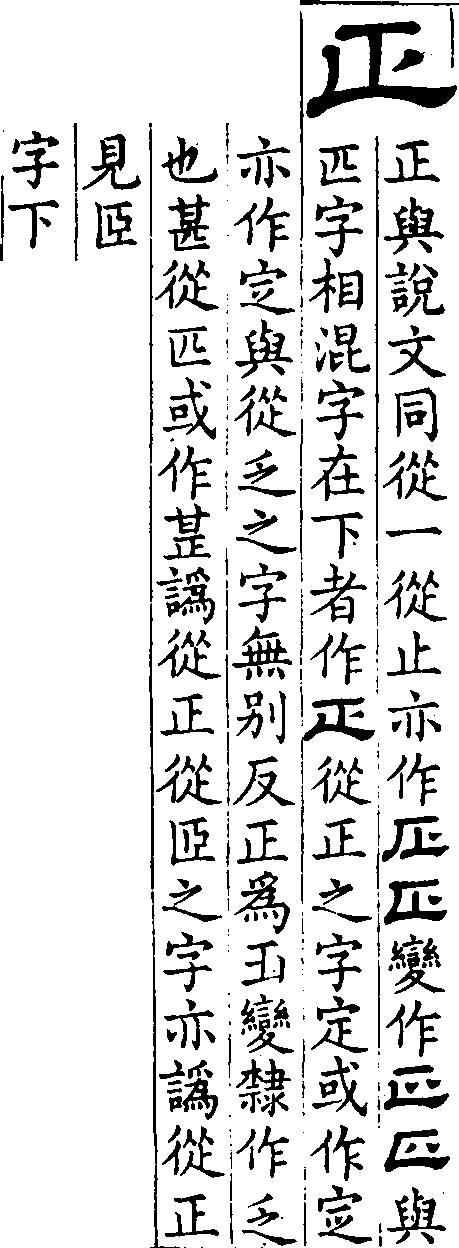 正
正與說文同從一從止亦作變作與
匹字相混字在下者作正從正之字定或作㝎
亦作㝎與從乏之字無別反正爲變隸作乏
也甚從匹或作譌從正從𦣝之字亦譌從正
見𦣝
字下